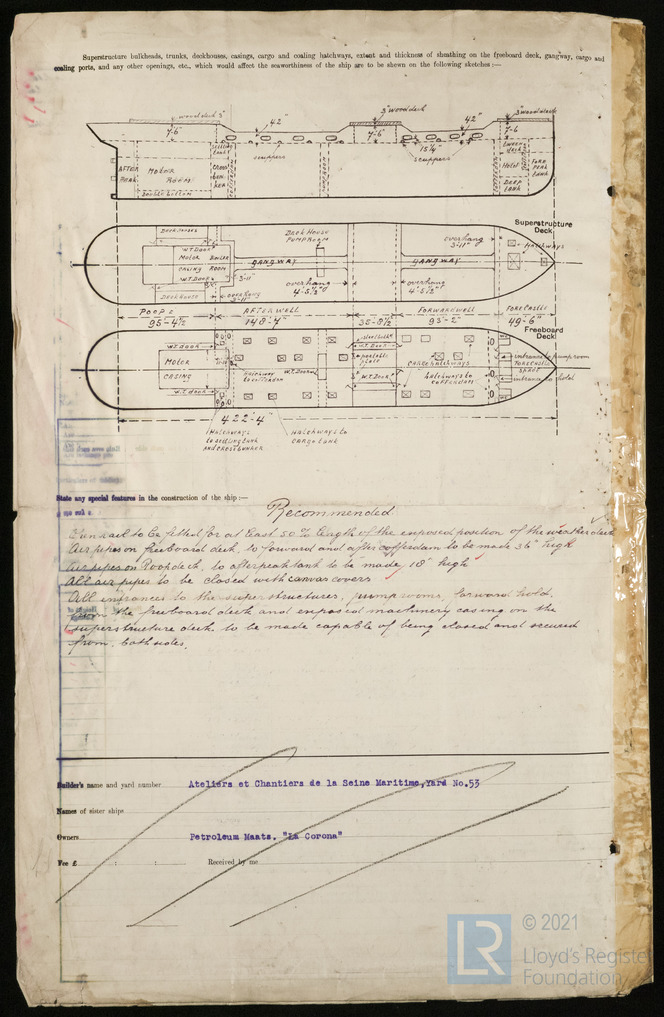 Superstructure bulkheads, trunks, deckhouses, casings, cargo and coaling hatchways, extent and thickness of sheathing on the freeboard deck, gangway, cargo and
coaling ports, and any other openings, etc., which would affect the seaworthiness of the ship are to be shewn on the following sketches :—
wood deck 3"
42"
3" wood deck
42"
3" wood deck
7-6"
7-6"
7-6
scuppers
15¼"
scuppers
AFTER PEAK
MOTOR ROOM
Double bottom
Tween deck
Hold
DEEP TANK
FORE PEAK TANK
Superstructure
Deck
Deckhouse
W.T. Door
MOTOR BOILER
CASING ROOM
W.T. Door
Deckhouse
DECK HOUSE
PUMP ROOM
GANGWAY
GANGWAY
overhang
3-11"
Hatchways
3-11"
overhang
3-11"
overhang
4-5½"
overhang
4-5½"
POOP
95-4½
AFTERWELL
148-7"
35-8½
FORWARDWELL
93-2"
FORECASTLE
49-6"
Freeboard
Deck
W.T. door
MOTOR
CASING
W.T. door
Hatchway
to cofferdam
W.T. Door
W.T. Door
portable
plate
W.T. Door
CARGO Hatchways
hatchways to
cofferdam
entrance to pump room
FORECASTLE
SPACE
entrance to hold
422-4"
Hatchways
to settling tank
and crossbunker
Hatchways to
CARGO tank
State any special features in the construction of the ship :—
Recommended
Gunnail to be fitted for at least 50% length of the exposed position of the weather deck
Air pipes on freeboard deck, to forward and after cofferdam to be made 36" high
Air pipes on Poop deck, to afterpeak tank to be made 18" high
All air pipes to be closed with canvas covers
All entrances to the super structures, pump rooms, forward hold,
from the freeboard deck and exposed machinery casing on the
superstructure deck to be made capable of being closed and secured
from both sides.
Builder's name and yard number Ateliers et Chantiers de la Seine Maritime, Yard No.53
Names of sister ships
Owners Petroleum Maats. "La Corona"
Fee £ : : Received by me
LR
© 2021
Lloyd's Register
Foundation